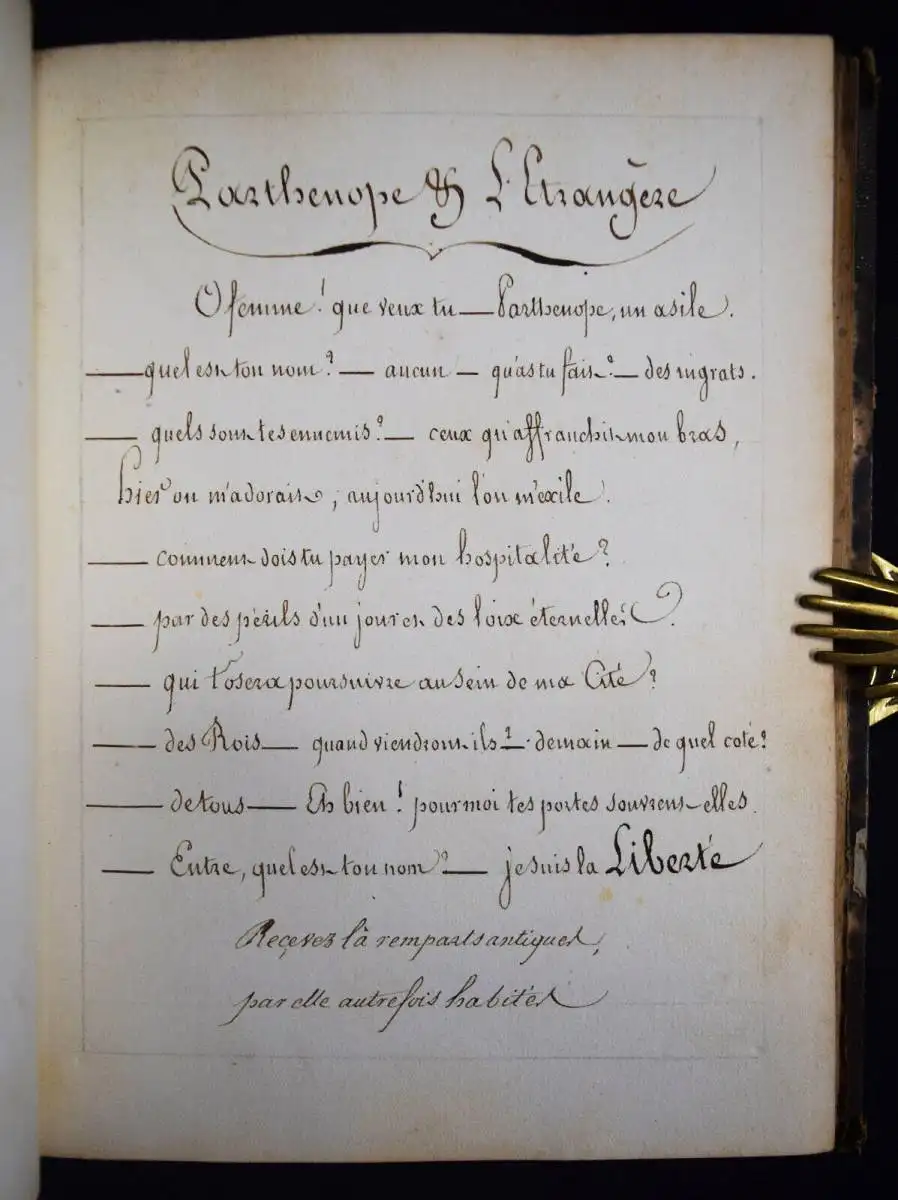 Parthenope & L'Etrangère
O femme ! que veux tu — Parthenope, un asile.
— quel est ton nom ? — aucun — qu'as tu fait ? — des ingrats.
— quels sont tes ennemis ? — ceux qu'affranchit mon bras,
hier on m'adorait, aujourd'hui l'on m'exile.
— comment dois tu payer mon hospitalité ?
— par des périls d'un jour et des loix éternelles.
— qui t'osera poursuivre au sein de ma Cité ?
— des Rois — quand viendront-ils ? — demain — de quel coté ?
— de tous — Eh bien ! pour moi tes portes souvrent-elles.
— Entre, quel est ton nom ? — je suis la Liberté
Reçevez là remparts antiques,
par elle autrefois habités